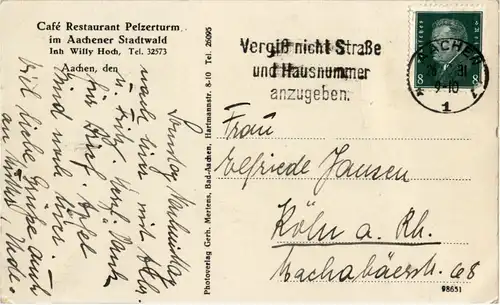 Café Restaurant Pelzerturm
im Aachener Stadtwald
Inh Willy Hoch, Tel. 32573
Aachen, den
Sonntag Nachmittag
nach hier mit
u. Fritz. Herzl. Dank
für Brief.
sind auch hier.
Viel liebe Grüße auch
an
Photoverlag Gerh. Mertens, Bad-Aachen, Hartmannstr. 8-10 Tel. 26095
Vergiß nicht Straße
und Hausnummer
anzugeben.
AACHEN
31
9-10
1
8 8
Frau
Elfriede Jansen
Köln a. Rh.
Machabäerstr. 68
98651